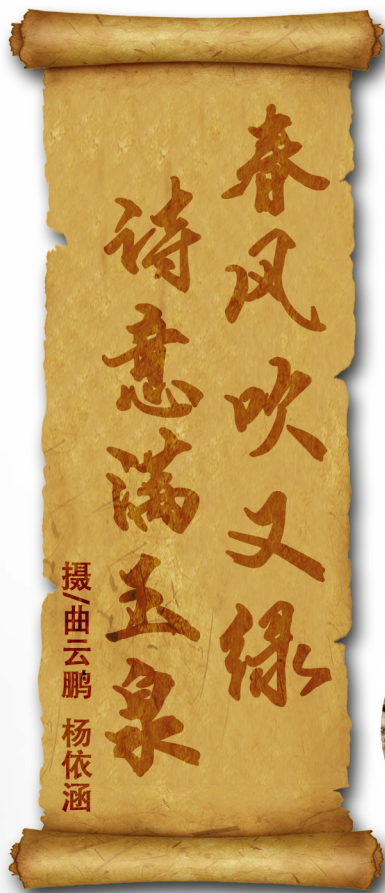 春风吹又绿
诗意满玉泉
摄/曲云鹏 杨依涵